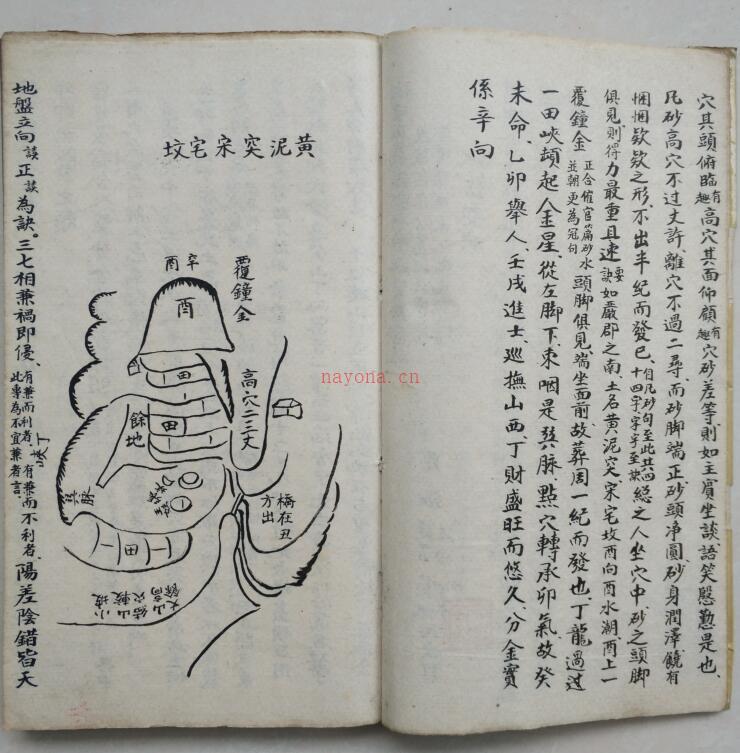 穴其頭俯臨有趣高穴其面仰顧有趣穴砂差等則如主賓坐談語笑慇懃是也
凡砂高穴不过丈許離穴不過二尋而砂脚端正砂頭净圓砂身潤澤饒有
悃悃欵欵之形不出半紀而發已自凡砂句至此共四十四字字字至訣總之人坐穴中砂之頭脚
俱見則得力最重且速要訣如嚴郡之南土名黄泥突宋宅坟酉向酉水潮酉上一
覆鐘金正合催官篇砂水並朝更為冠句頭脚俱見端坐面前故葬周一紀而發也丁龍過
一田峽頓起金星從左脚下束咽是巽脉點穴轉承卯氣故癸
未命乙卯舉人壬戌進士巡撫山西丁財盛旺而悠久分金實
係辛向
黄泥突宋宅坟
覆鐘金
辛
酉
酉
高穴二三丈
田
田
餘地
巽脉
丁峽
田
橋在丑方出
小坡
結山較穴
山高
地盤立向談正談為訣。三七相兼禍即侵、有兼而利者、有兼而不利者、此專為不宜兼者言、陽差陰錯皆天
nayona.cn